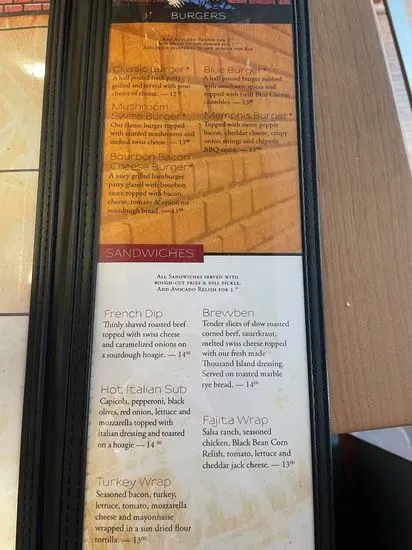 BURGERS
Add Avocado Relish for 2.
Classic Burger*
A half pound fresh patty
grilled and served with your
choice of cheese. — 12
Mushroom
Swiss Burger*
Our classic burger topped
with sautéed mushrooms and
melted swiss cheese. — 13
Bourbon Bacon
Cheese Burger*
A juicy grilled hamburger
patty glazed with bourbon
sauce topped with bacon,
cheese, tomato & onion on
sourdough bread. — 13
Blue Burger*
A half pound burger rubbed
with southwest spices and
topped with fresh Blue Cheese
crumbles. — 13
Memphis Burger*
Topped with sweet pepper
bacon, cheddar cheese, crispy
onion strings and chipotle
BBQ sauce. — 13
SANDWICHES
All Sandwiches served with
rough-cut fries & dill pickle.
Add Avocado Relish for 2.
French Dip
Thinly shaved roasted beef
topped with swiss cheese
and caramelized onions on
a sourdough hoagie. — 14⁰⁰
Hot Italian Sub
Capicola, pepperoni, black
olives, red onion, lettuce and
mozzarella topped with
italian dressing and toasted
on a hoagie — 14.⁰⁰
Turkey Wrap
Seasoned bacon, turkey,
lettuce, tomato, mozzarella
cheese and mayonnaise
wrapped in a sun dried flour
tortilla. — 13⁰⁰
Brewben
Tender slices of slow roasted
corned beef, sauerkraut,
melted swiss cheese topped
with our fresh made
Thousand Island dressing.
Served on toasted marble
rye bread. — 14⁰⁰
Fajita Wrap
Salsa ranch, seasoned
chicken, Black Bean Corn
Relish, tomato, lettuce and
cheddar jack cheese. — 13⁰⁰